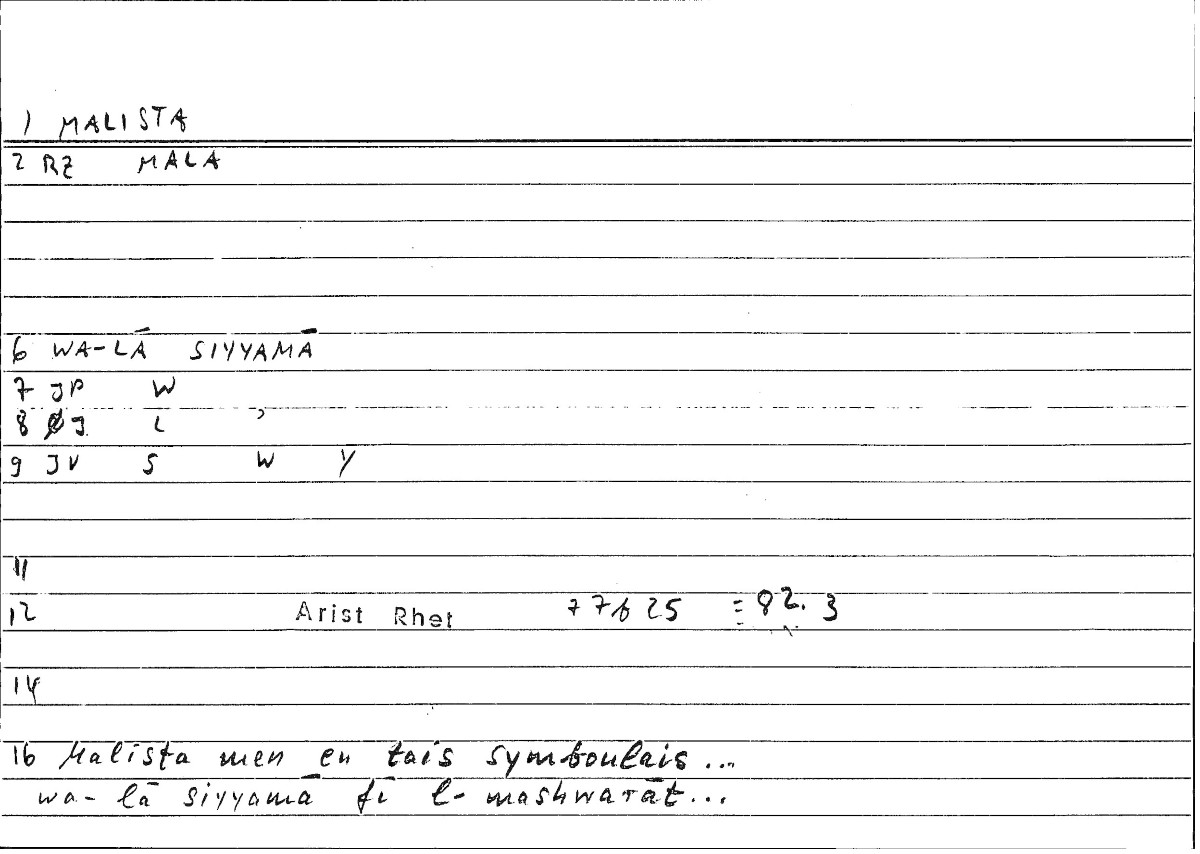 1 MALISTA
2 RZ MALA
6 WA-LĀ SIYYAMĀ
7 JP W
8 J L ʾ
9 JV S W Y
11
12 Arist Rhet 77b25 = 82.3
14
16 Malista men en tais symboulais...
wa-lā siyyamā fī l-mashwarāt...